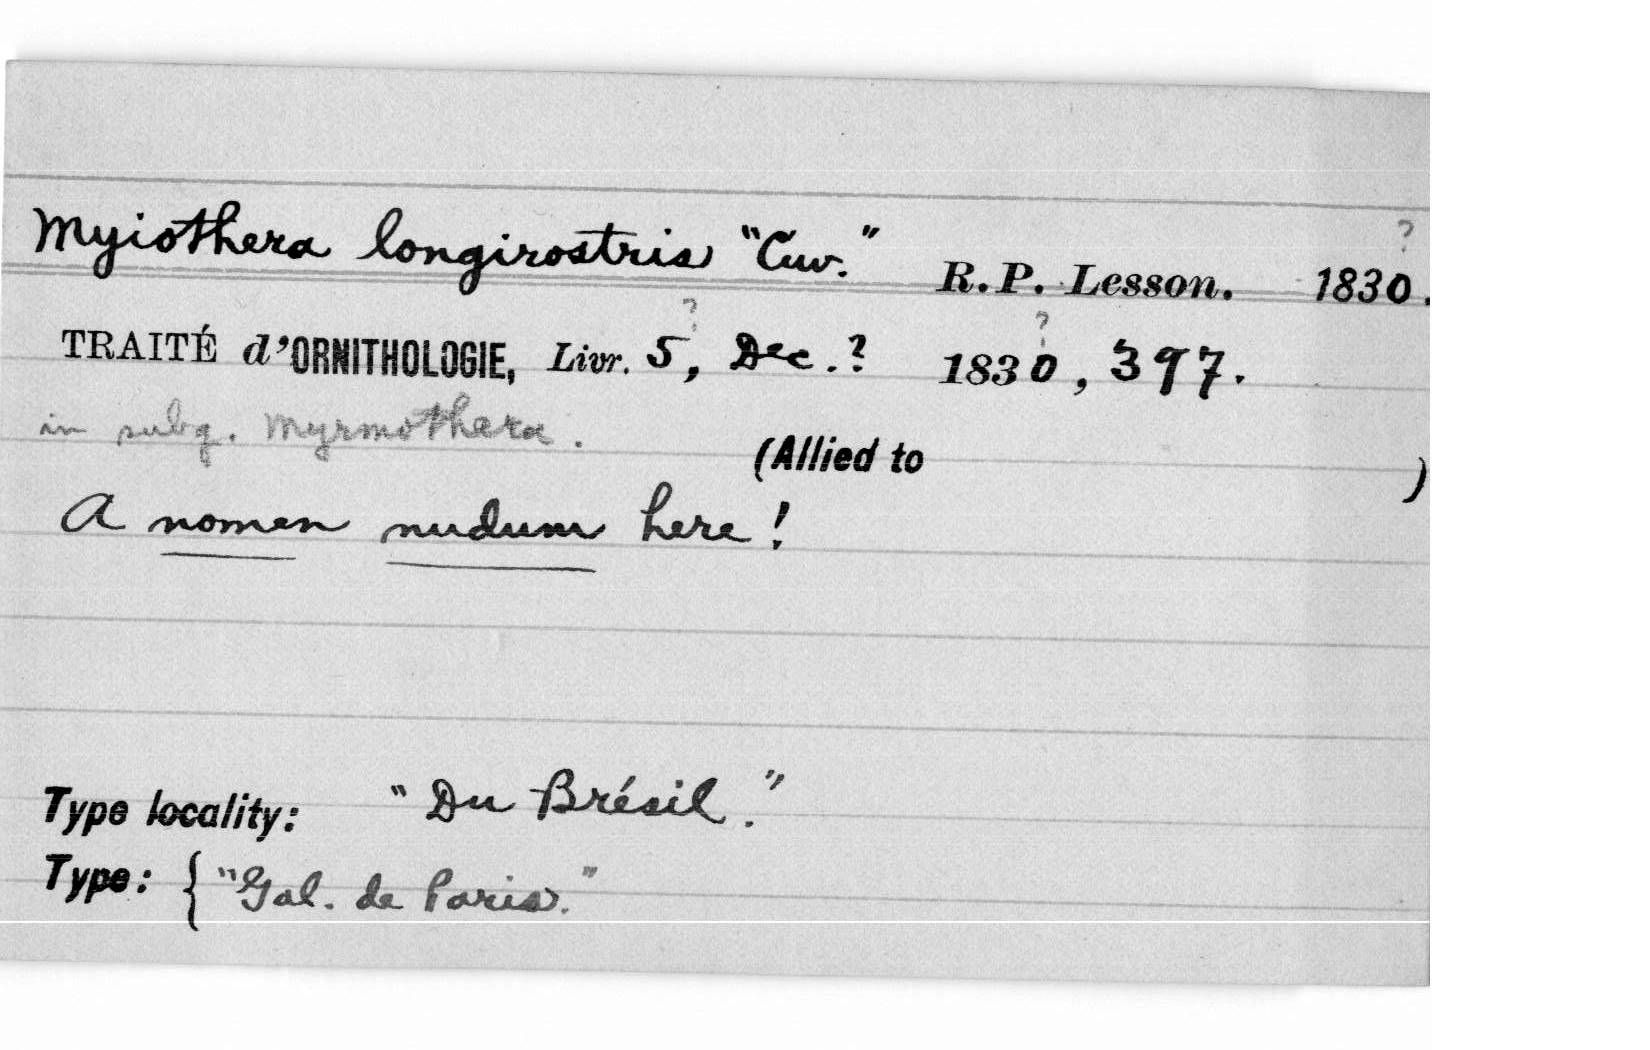 ?
Myiothera longirostris "Cuv." R.P. Lesson. 1830.
? ?
TRAITÉ d'ORNITHOLOGIE, Livr. 5, Dec.? 1830, 397.
in subg. Myrmothera.
(Allied to )
A nomen nudum here!
Type locality: "Du Brésil."
Type: { "Gal. de Paris."